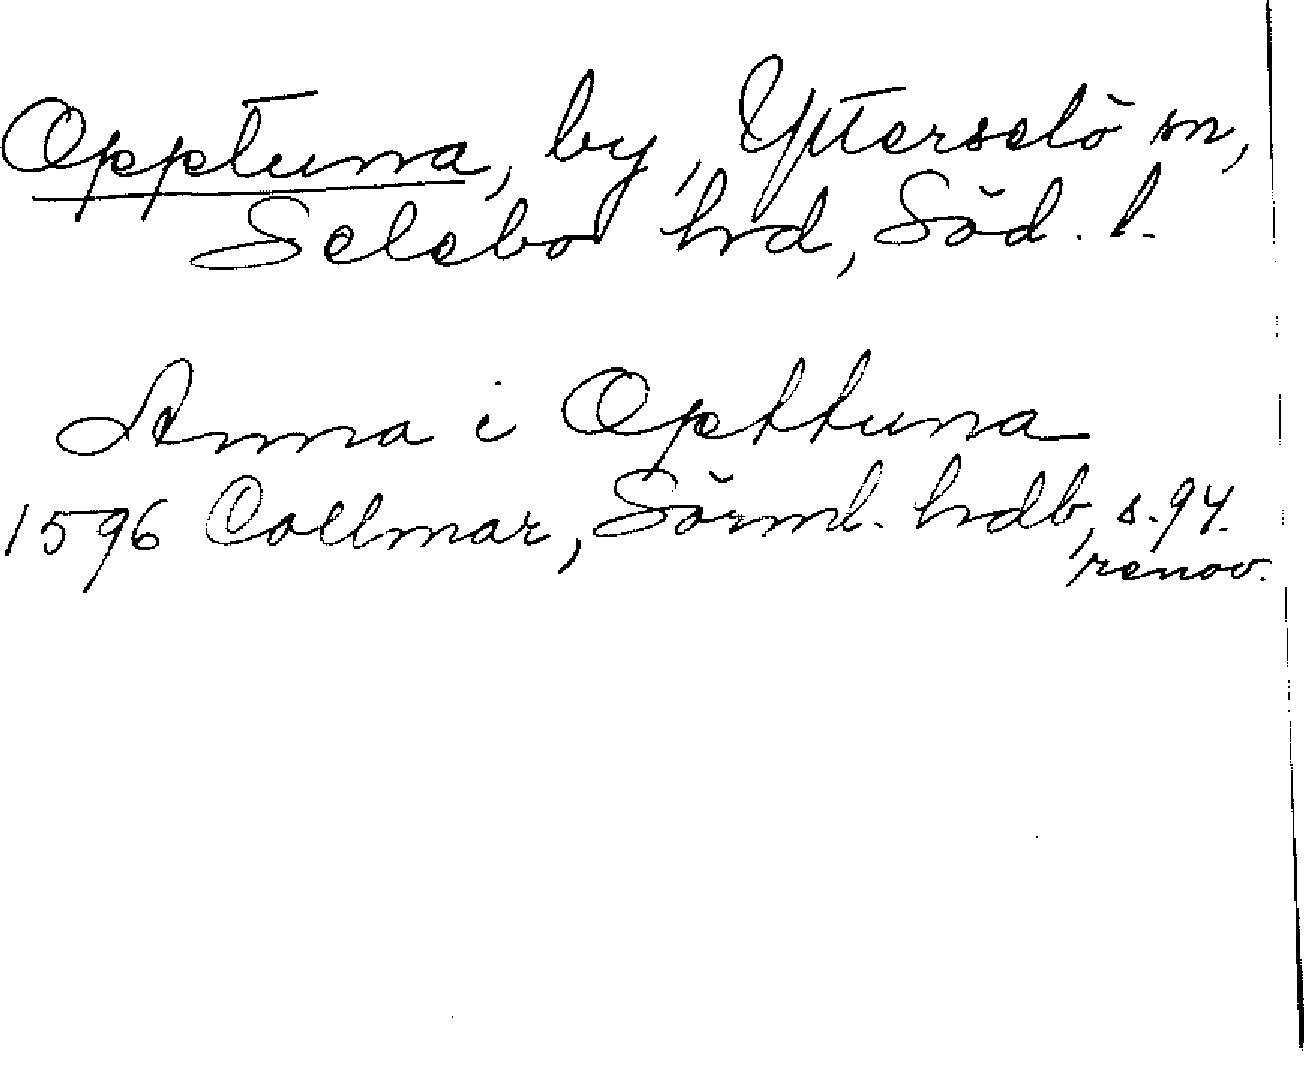 Opptuna, by, Ytterselö sn,
Selebo hrd, Söd. l.
Anna i Opttuna
1596 Collmar, Sörml. hrdb, s. 94.
renov.